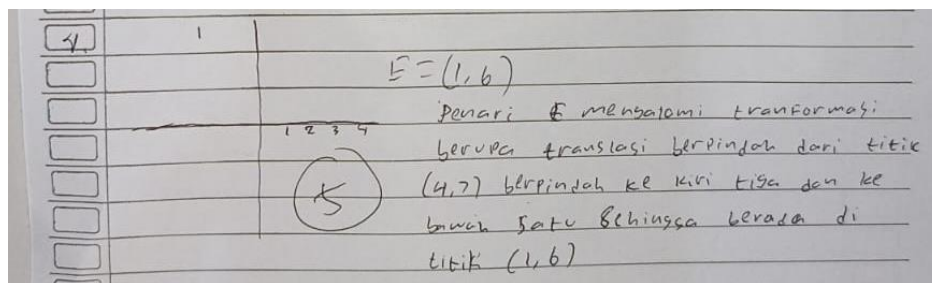 4.
1
E = (1,6)
Penari E mengalami tranformasi
1 2 3 4
berupa translasi berpindah dari titik
(4,7) berpindah ke kiri tiga dan ke
5
bawah satu sehingga berada di
titik (1,6)